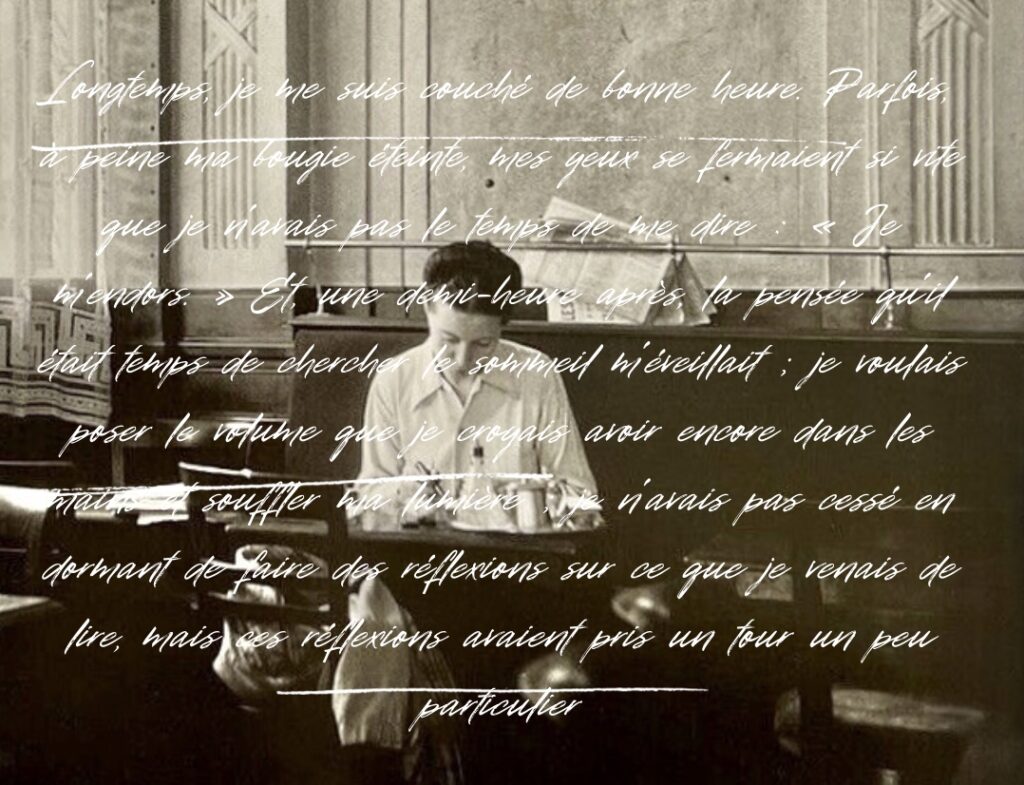 Longtemps, je me suis couché de bonne heure. Parfois,
à peine ma bougie éteinte, mes yeux se fermaient si vite
que je n'avais pas le temps de me dire : « Je
m'endors. » Et, une demi-heure après, la pensée qu'il
était temps de chercher le sommeil m'éveillait ; je voulais
poser le volume que je croyais avoir encore dans les
mains et souffler ma lumière ; je n'avais pas cessé en
dormant de faire des réflexions sur ce que je venais de
lire, mais ces réflexions avaient pris un tour un peu
particulier